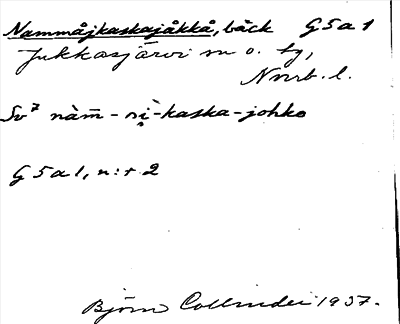 Nammåjkaskajåkkå, bäck G5a1
Jukkasjärvi sn o. tg,
Nrrb. l.
Sv⁷ nàm̄ - ni̯ - kaska - johko
G5a1, n:r 2
Björn Collinder 1937.